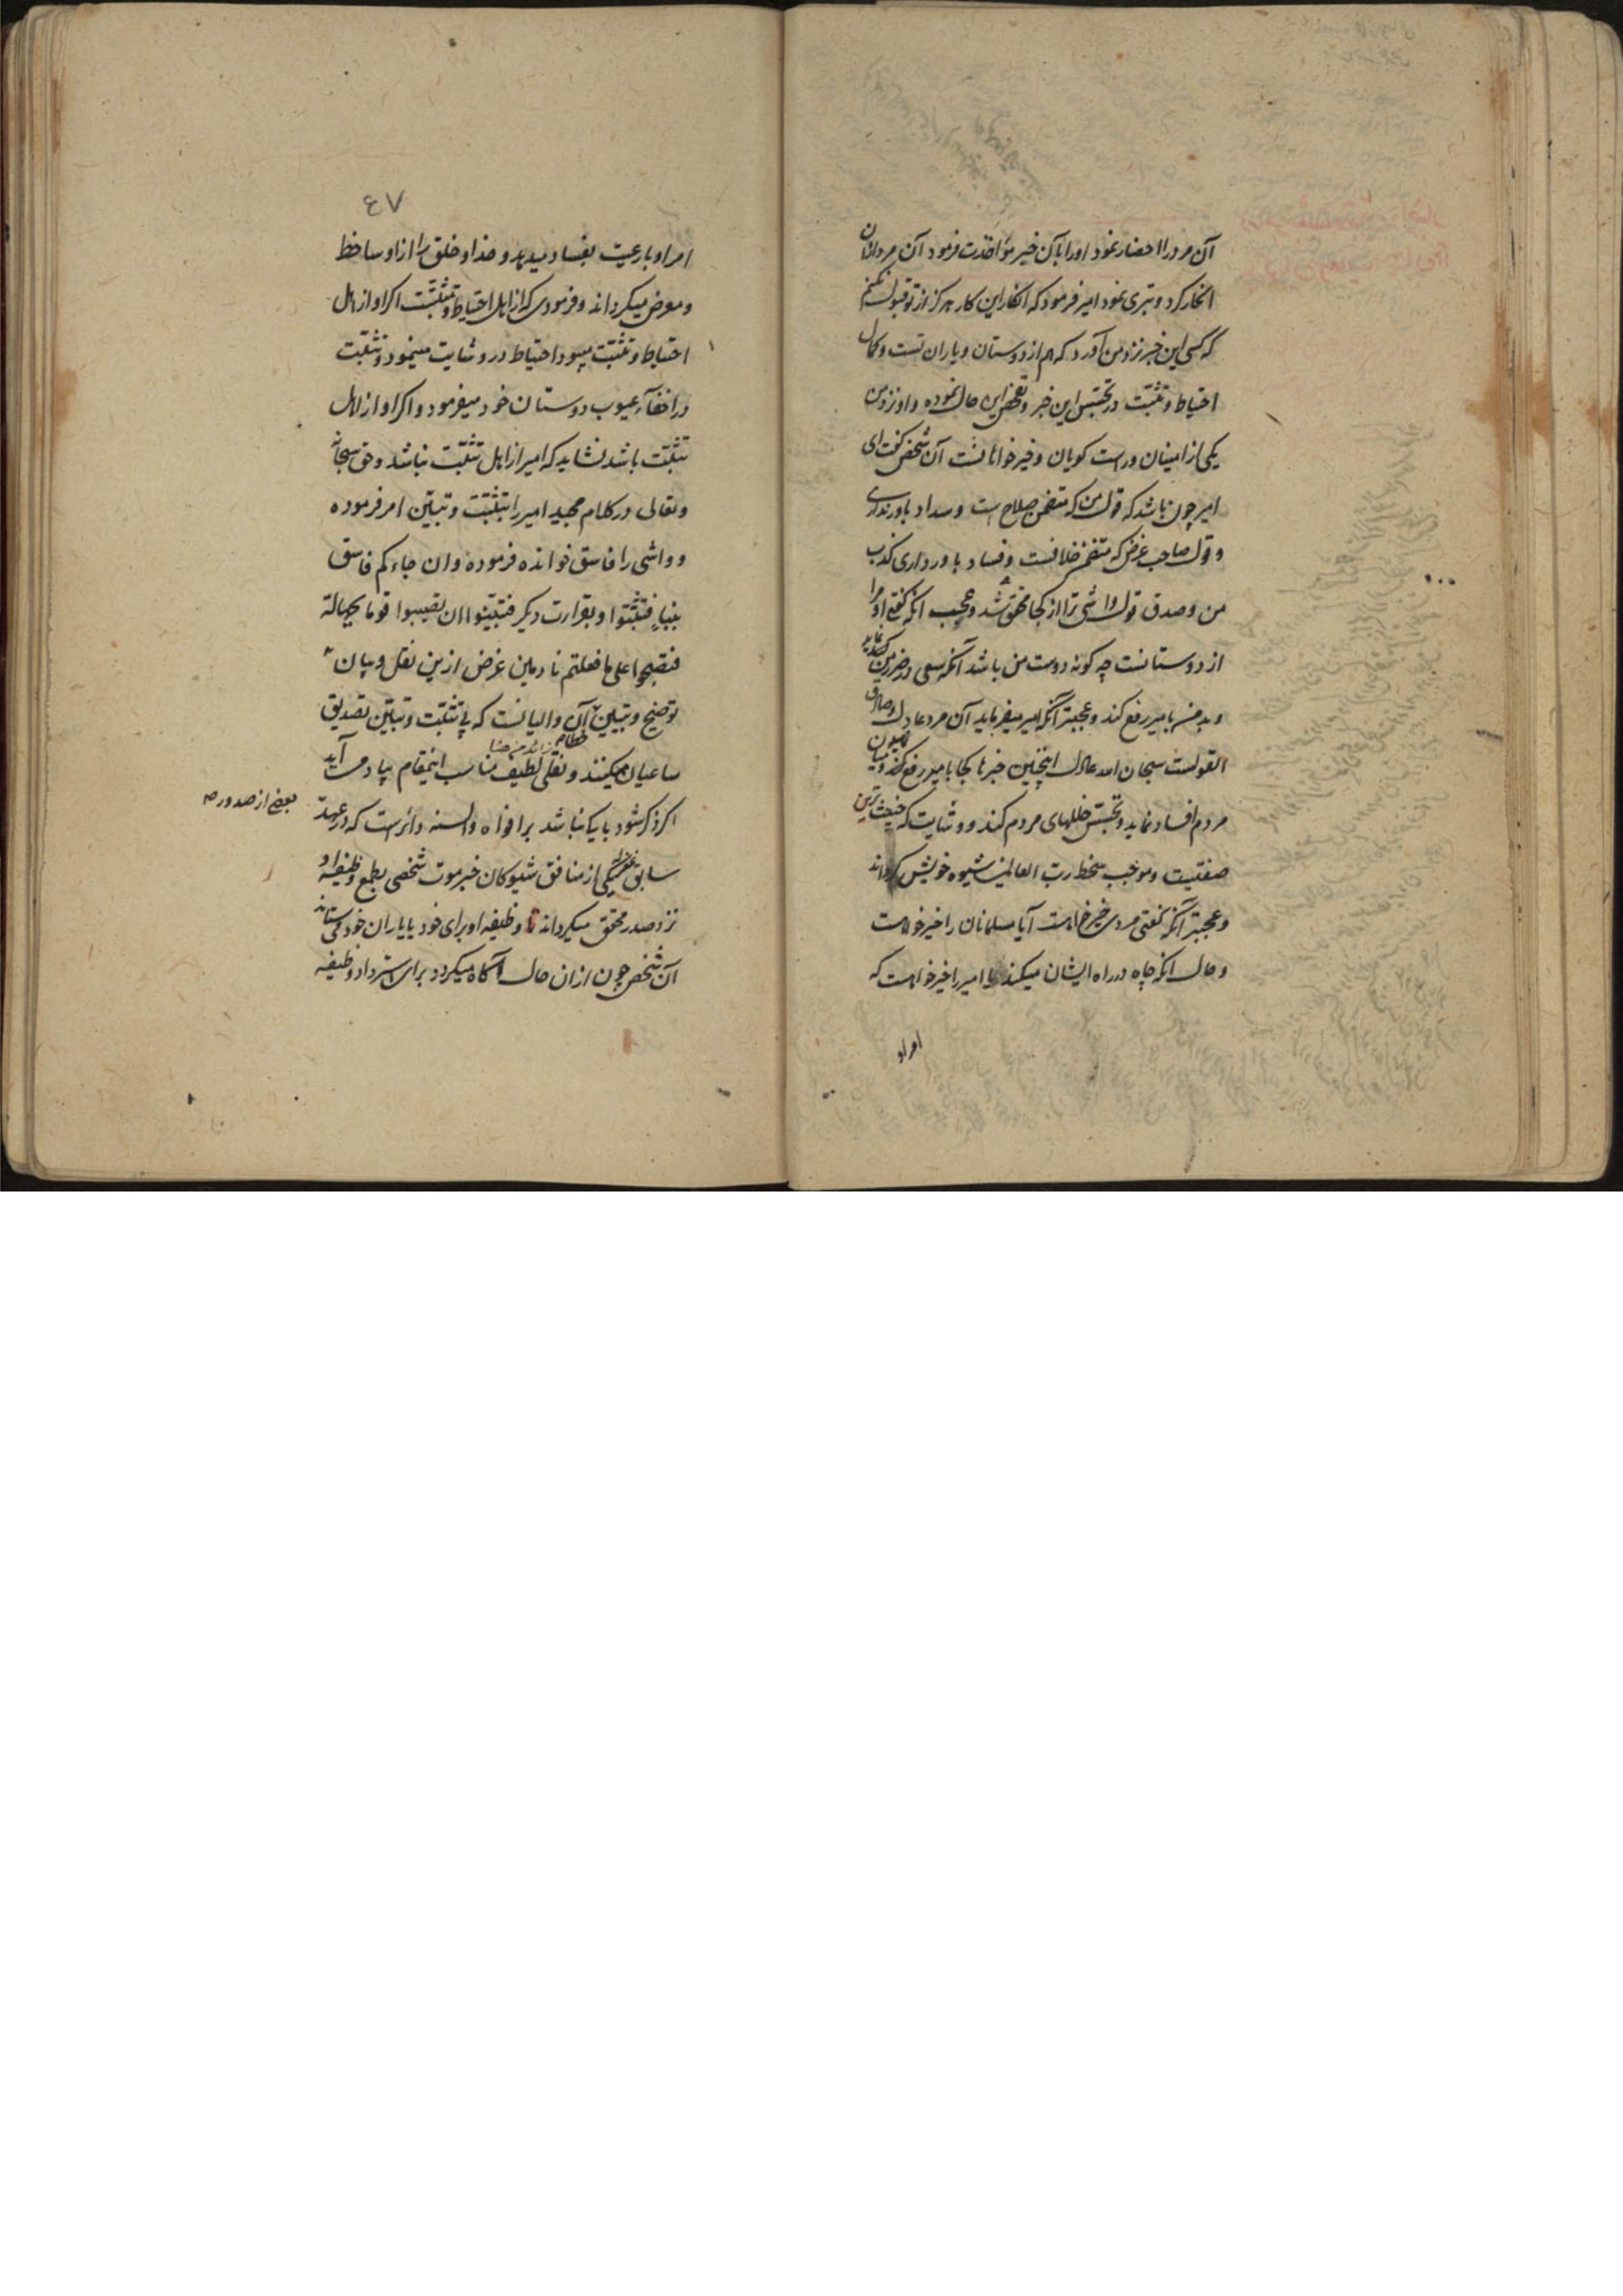 آن مرد را احضار نمود او را بآن خبر مؤاخذت فرمود آن مرد ازان
انکار کرد و تبری نمود امیر فرمود که انکار این کار هرگز از تو قبول نکنم
که کسی این خبر نزد من آورد که هم از دوستان و یاران تست و کمال
احتیاط و تثبت در تجسس این خبر و تفحص این حال نموده و او نزد من
یکی از امینان و راست کویان و خیرخواهانست آن شخص کفت ای
امیر چون باشد که قول من که متضمن صلاح است و سداد باور نداری
و قول صاحب غرض که متضمن خلافست و فساد باور داری کذب
من و صدق قول واشی ترا از کجا محقق شد و عجب انکه کفتی او مرا
از دوستانست چه کونه دوست من باشد آنکه سعی در ضرر من
و بد من بامیر رفع کند و عجبتر آنکه امیر میفرماید آن مرد عادل و صادق
القولست سبحان الله عادل اینچنین خبرها کجا بامیر رفع کند و میان
مردم افساد نماید و تجسس خللهای مردم کند و وشایت که خبیث ترین
صفتیست و موجب سخط رب العالمین شیوه خویش کرداند
و عجبتر آنکه کفتی مردی خیرخواهست آیا مسلمانان را خیرخواهست
و حال انکه چاه در راه ایشان میکند یا امیر را خیرخواهست که
امراو
٤٧
امراو بارعیت بفساد میدهد و خدا و خلق را از او ساخط
و معرض میکرداند و فرمودی که از اهل احتیاط و تثبتت اکر او از اهل
احتیاط و تثبت میبود احتیاط در وشایت مینمود و تثبت
در اخفاء عیوب دوستان خود میفرمود و اکر او از اهل
تثبت باشد نشاید که امیر از اهل تثبت نباشد و حق سبحانه
و تعالی در کلام مجید امیر را بتثبت و تبین امر فرموده
و واشی را فاسق خوانده فرموده وان جاءکم فاسق
بنباٍ فتثبتوا و بقرارت دیکر فتبینوا ان تصیبوا قوما بجهالة
فتصبحوا علی ما فعلتم نادمین غرض ازین نقل و بیان
توضیح و تبیین آن والیانست که بی تثبت و تبین تصدیق
ساعیان میکنند و نقلی لطیف مناسب اینمقام بیاد می آید
اکر ذکر شود باکی نباشد بر افواه و السنه دائرست که در عهد
بعضی از صدور
سابق یکی از منافق شیوکان خبر موت شخصی بطمع وظیفه او
نزد صدر محقق میکرداند تا وظیفه او برای خود یا یاران خود می ستاند
آن شخص چون ازان حال آکاه میکردد برای استرداد وظیفه